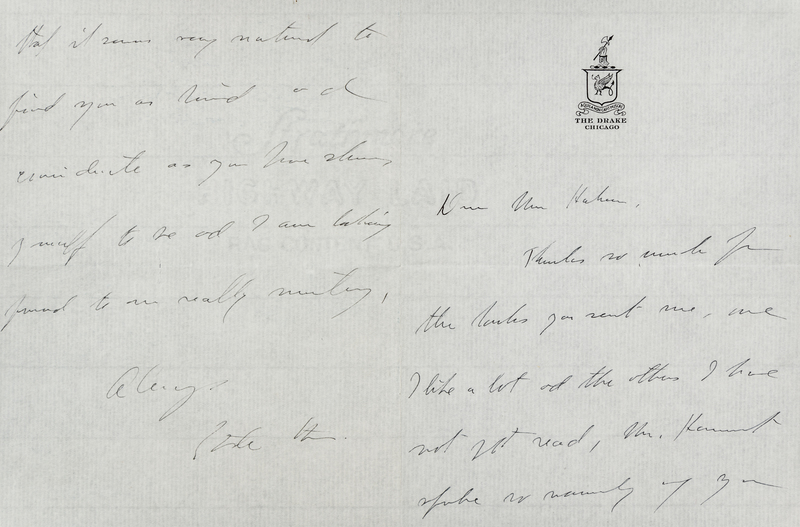 THE DRAKE
CHICAGO
Dear Mr.
Thanks so much for
the books you sent me, one
I like a lot and the others I have
not yet read, Mr.
spoke so warmly of you
that it seems very natural to
find you as kind and
considerate as you have shown
yourself to be and I am looking
forward to our really meeting,
Always